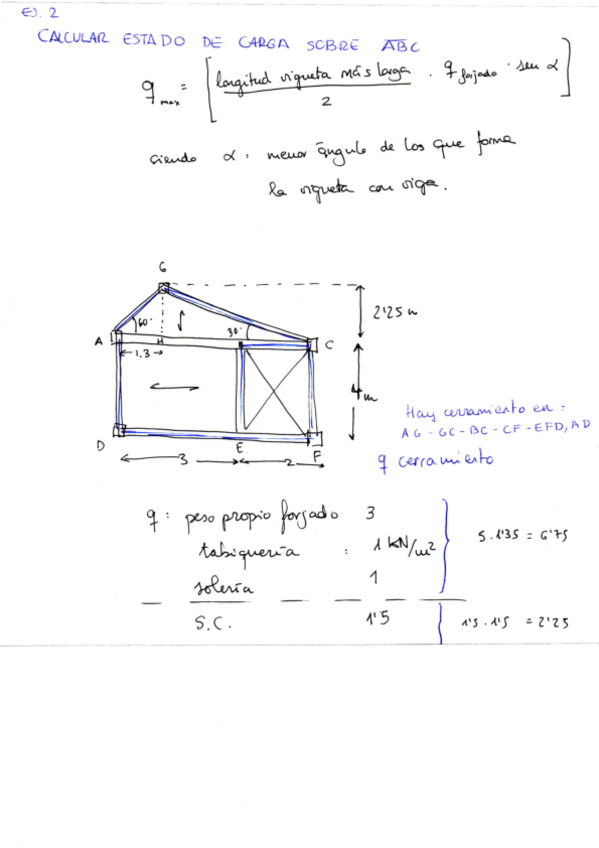 EJ. 2
CALCULAR ESTADO DE CARGA SOBRE ABC
q max = [ longitud vigueta más larga / 2 . q forjado . sen α ]
siendo α : menor ángulo de los que forma
la vigueta con viga.
G
60°
30°
2'25 m
A
H
C
1.3
4 m
Hay cerramiento en :
AG - GC - BC - CF - EFD, AD
D
E
F
3
2
q cerramiento
q : peso propio forjado 3
tabiquería : 1 KN/m²
5 . 1'35 = 6'75
solería 1
S.C. 1'5
1'5 . 1'5 = 2'25